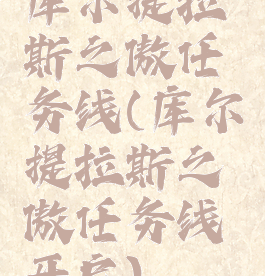 库尔提拉
斯之傲任
务线(库尔
提拉斯之
傲任务线
开户)